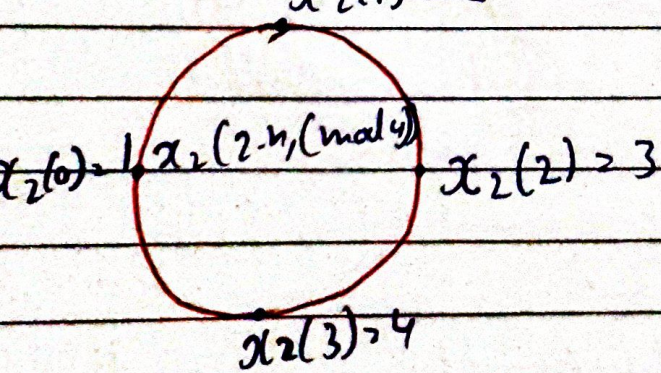 x₂(0)=1 x₂(2-n,(mod 4)) x₂(2)=3
x₂(3)=4